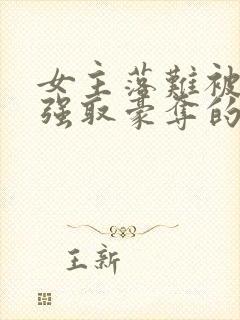 女主落難被
強取豪奪的
王新